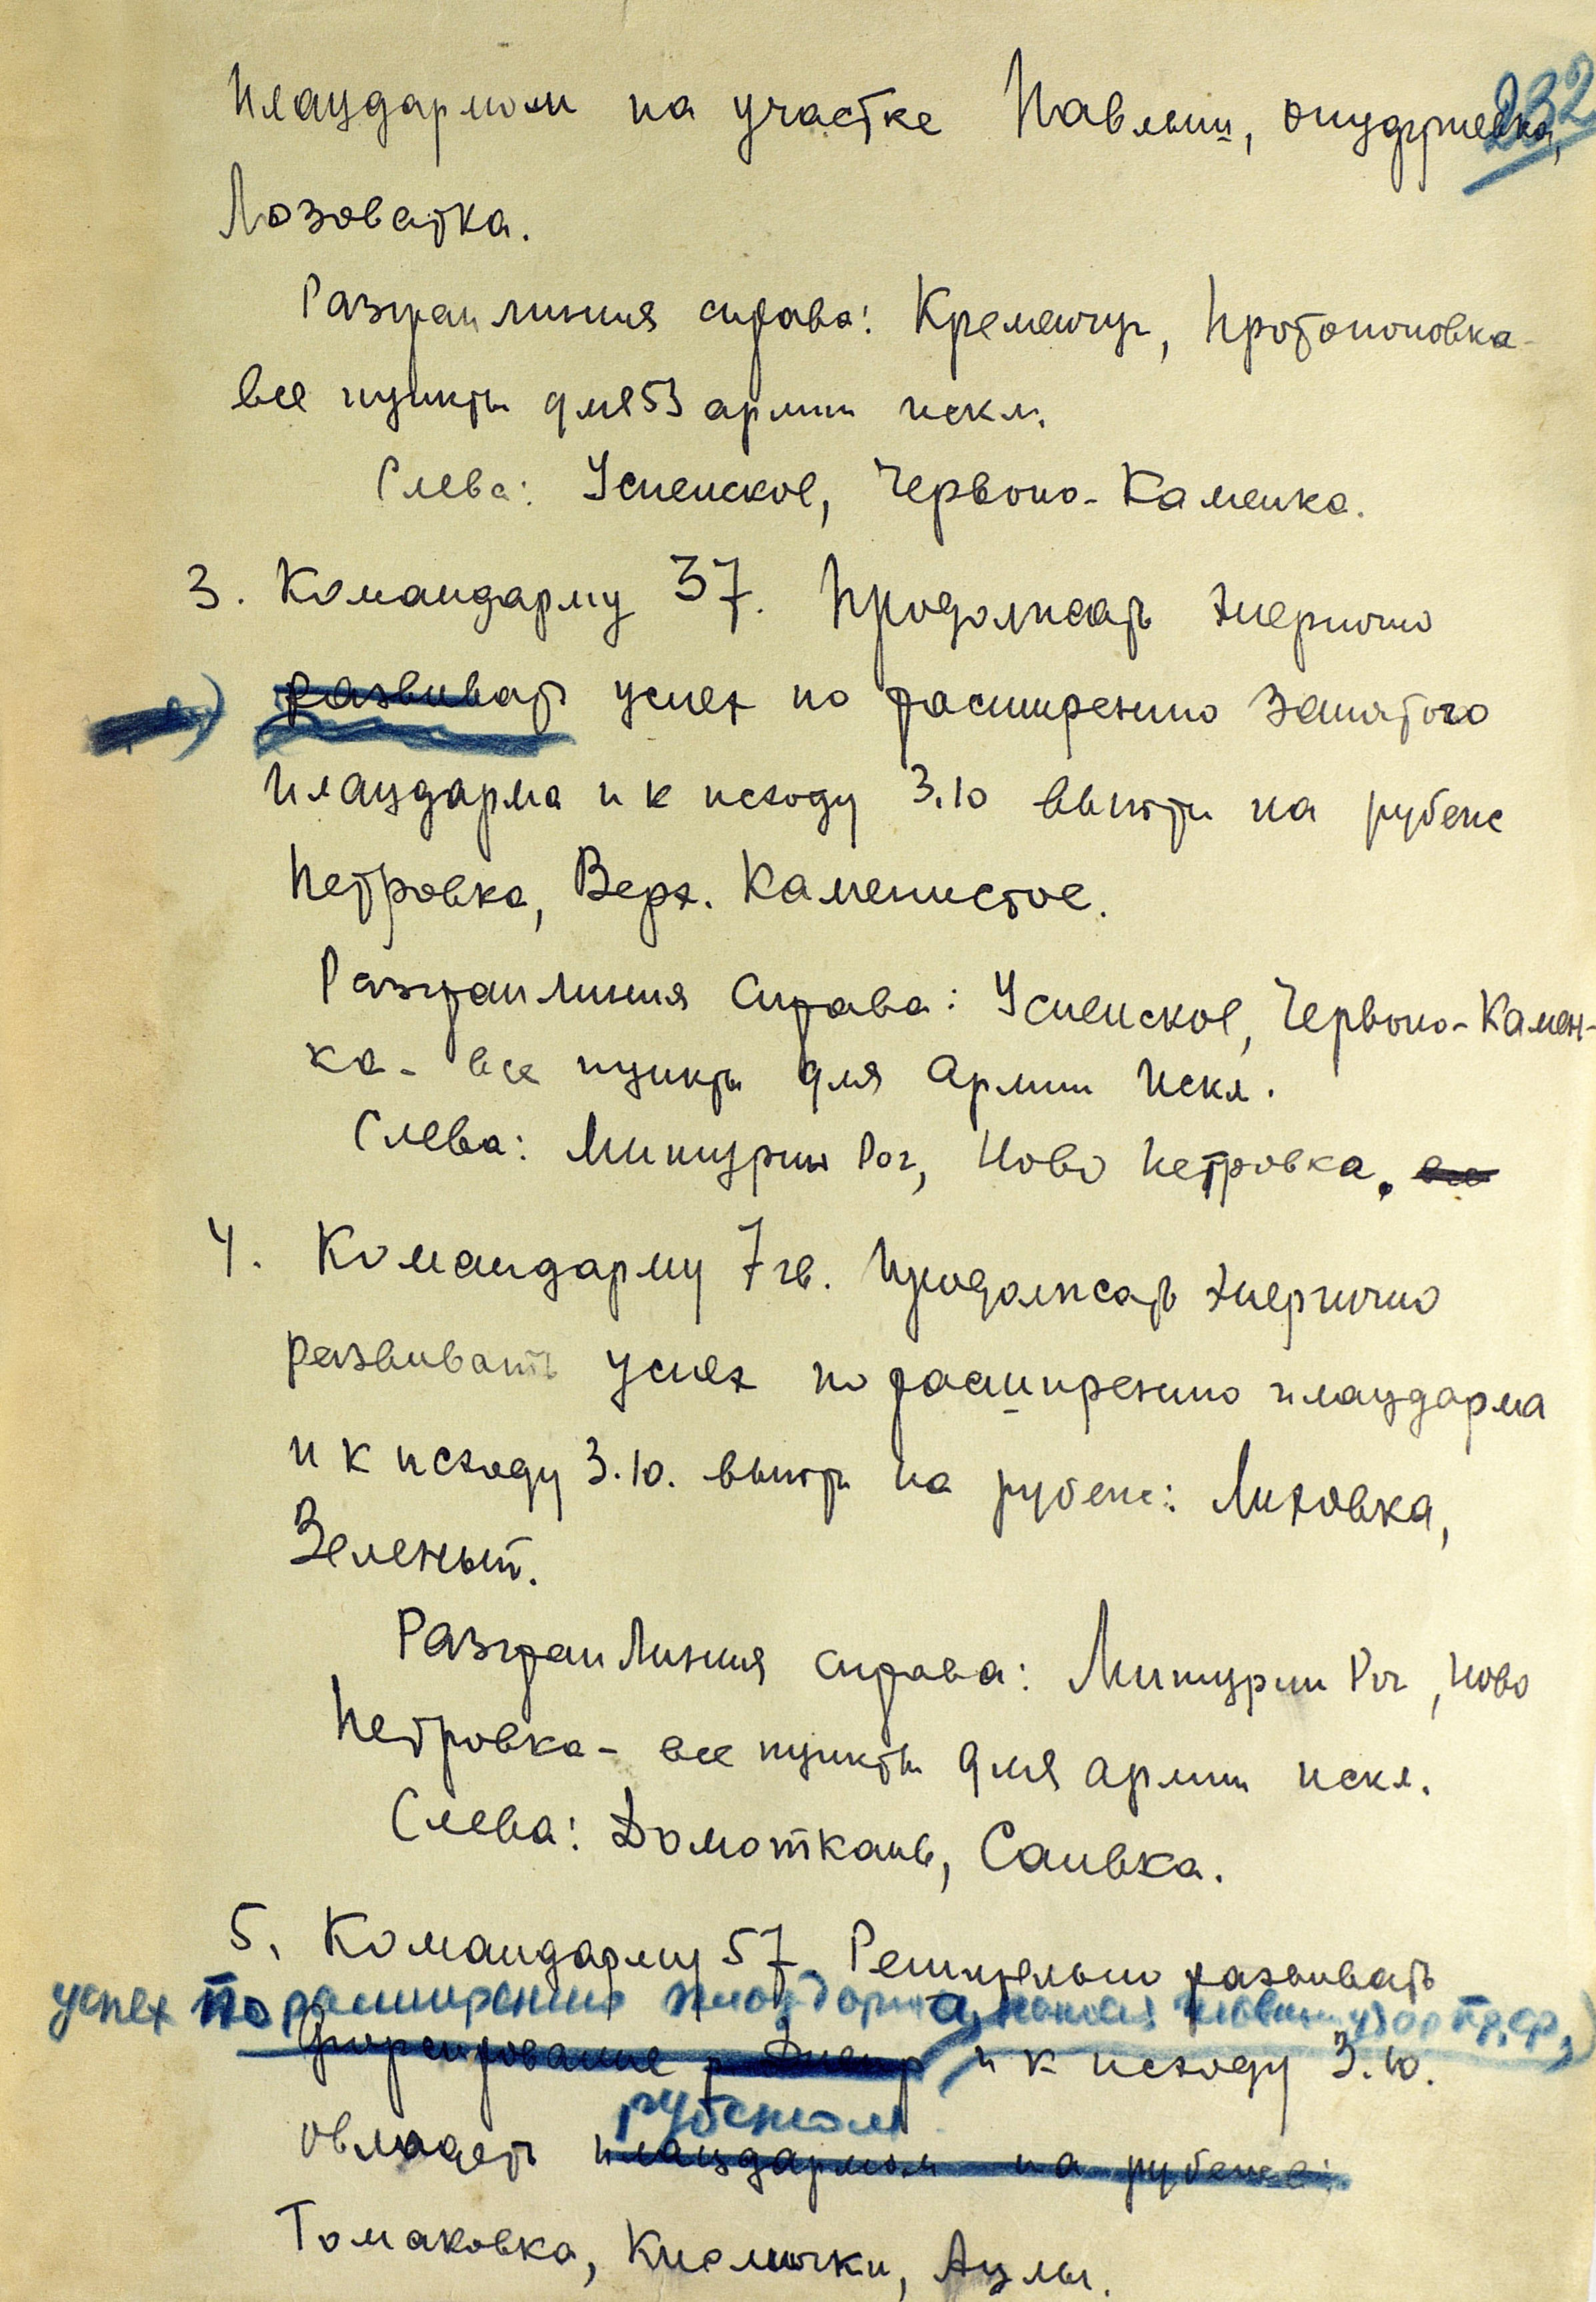 232
плацдармом на участке Павлыш, Онуфриевка,
Лозоватка.
Разгран линия справа: Кременчуг, Протопоповка-
все пункты для 53 армии искл.
Слева: Успенское, Червоно-Каменка.
3. Командарму 37. Продолжать энергично
развивать успех по расширению занятого
плацдарма и к исходу 3.10 выйти на рубеж
Петровка, Верх. Каменистое.
Разгран линия справа: Успенское, Червоно-Камен-
ка - все пункты для армии искл.
Слева: Мишурин Рог, Ново Петровка. все
4. Командарму 7 гв. Продолжать энергично
развивать успех по расширению плацдарма
и к исходу 3.10. выйти на рубеж: Лиховка,
Зеленый.
Разгран линия справа: Мишурин Рог, Ново
Петровка - все пункты для армии искл.
Слева: Домоткань, Саивка.
5. Командарму 57. Решительно развивать
успех по расширению плацдарма,
форсирование р. Днепр и к исходу 3.10.
рубежом
овладеть плацдармом на рубеже:
Томаковка, Кислички, Аулы.